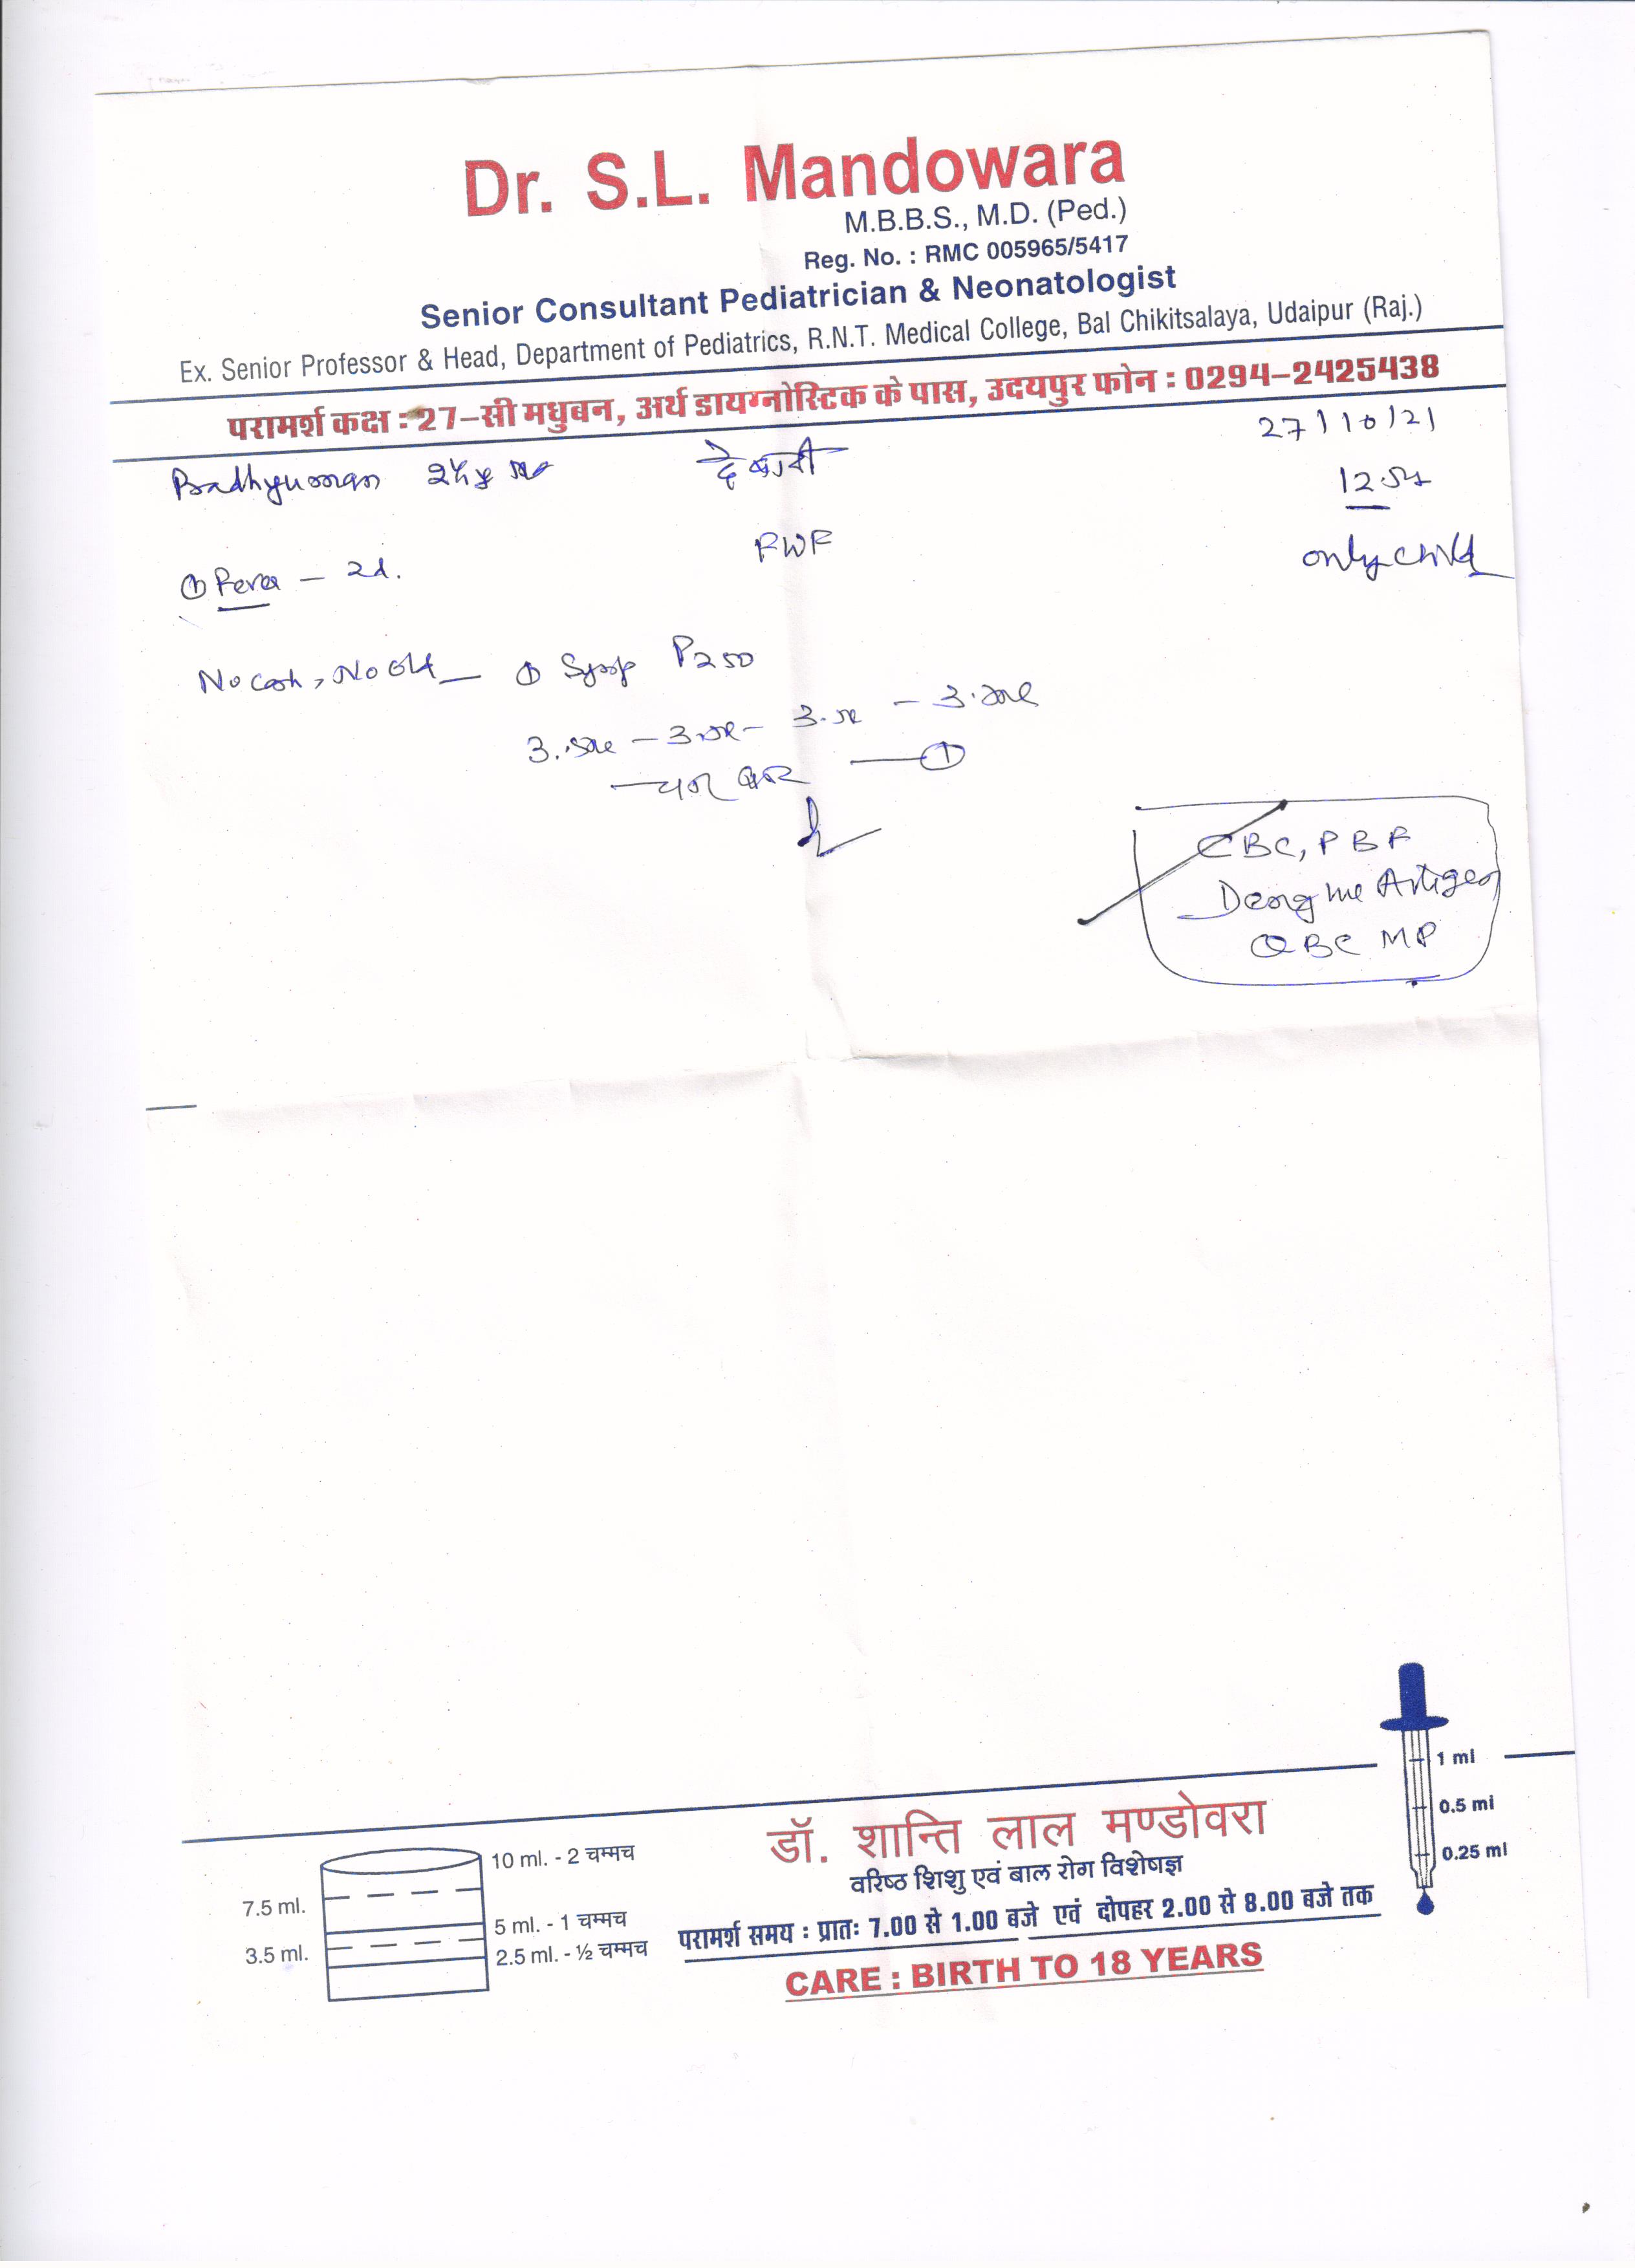 Dr. S.L. Mandowara
M.B.B.S., M.D. (Ped.)
Reg. No. : RMC 005965/5417
Senior Consultant Pediatrician & Neonatologist
Ex. Senior Professor & Head, Department of Pediatrics, R.N.T. Medical College, Bal Chikitsalaya, Udaipur (Raj.)
परामर्श कक्ष : 27-सी मधुबन, अर्थ डायग्नोस्टिक के पास, उदयपुर फोन : 0294-2425438
27/10/21
Pradhyuman देबारी
12.5
FWF
only child
① Fever - 2d.
No , No ① Syrup P250
3.5ml - 3.5ml - 3.5ml - 3.5ml
चार बार - ①
CBC, PBF
Dengue Antigen
QBC MP
1 ml
0.5 ml
0.25 ml
10 ml. - 2 चम्मच
7.5 ml.
5 ml. - 1 चम्मच
3.5 ml.
2.5 ml. - ½ चम्मच
डॉ. शान्ति लाल मण्डोवरा
वरिष्ठ शिशु एवं बाल रोग विशेषज्ञ
परामर्श समय : प्रातः 7.00 से 1.00 बजे एवं दोपहर 2.00 से 8.00 बजे तक
CARE : BIRTH TO 18 YEARS